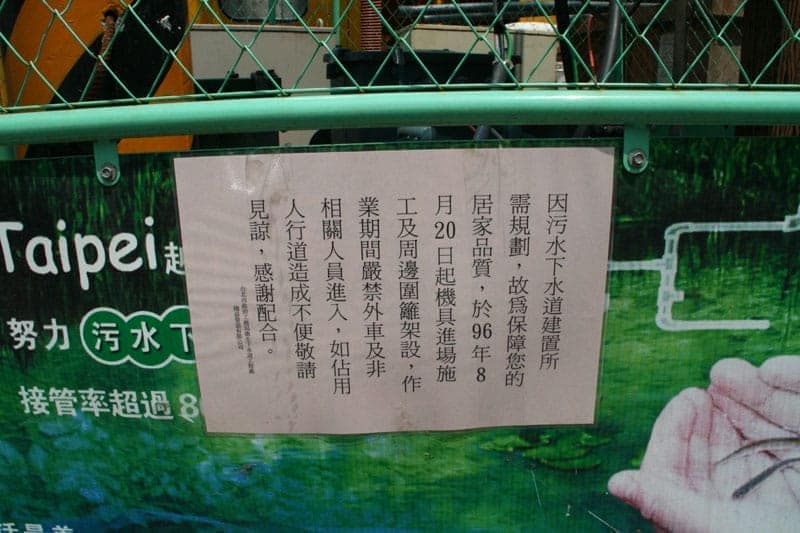 因污水下水道建置所
需規劃，故為保障您的
居家品質，於96年8
月20日起機具進場施
工及周邊圍籬架設，作
業期間嚴禁外車及非
相關人員進入，如佔用
人行道造成不便敬請
見諒，感謝配合。
Taipei
努力 污水下
接管率超過8